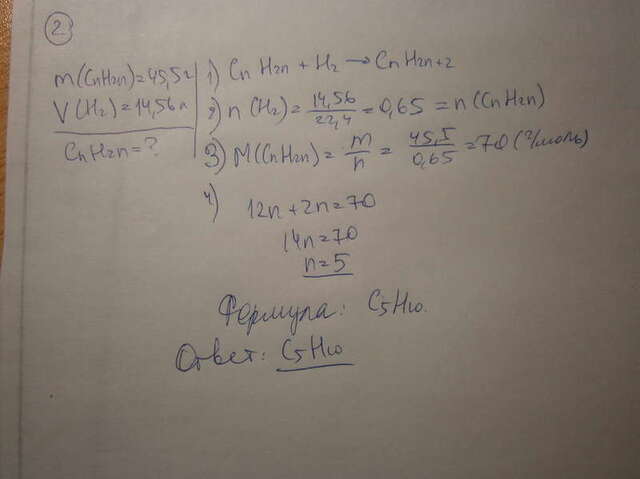 2.
m(CnH2n)=45,5г
V(H2)=14,56л
CnH2n=?
1) CnH2n + H2 → CnH2n+2
2) n(H2)= 14,56/22,4 = 0,65 = n(CnH2n)
3) M(CnH2n)= m/n = 45,5/0,65 = 70 (г/моль)
4) 12n + 2n = 70
14n = 70
n = 5
Формула: C5H10.
Ответ: C5H10